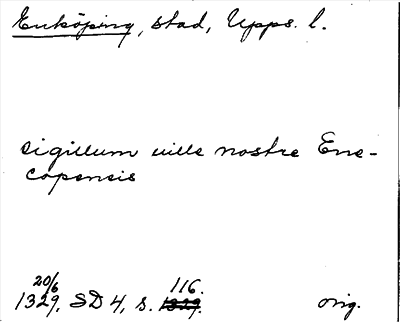 Enköping, stad, Upps. l.
sigillum ville nostre Ene-
copensis
20/6 116.
1329. SD 4, s. 1329. orig.